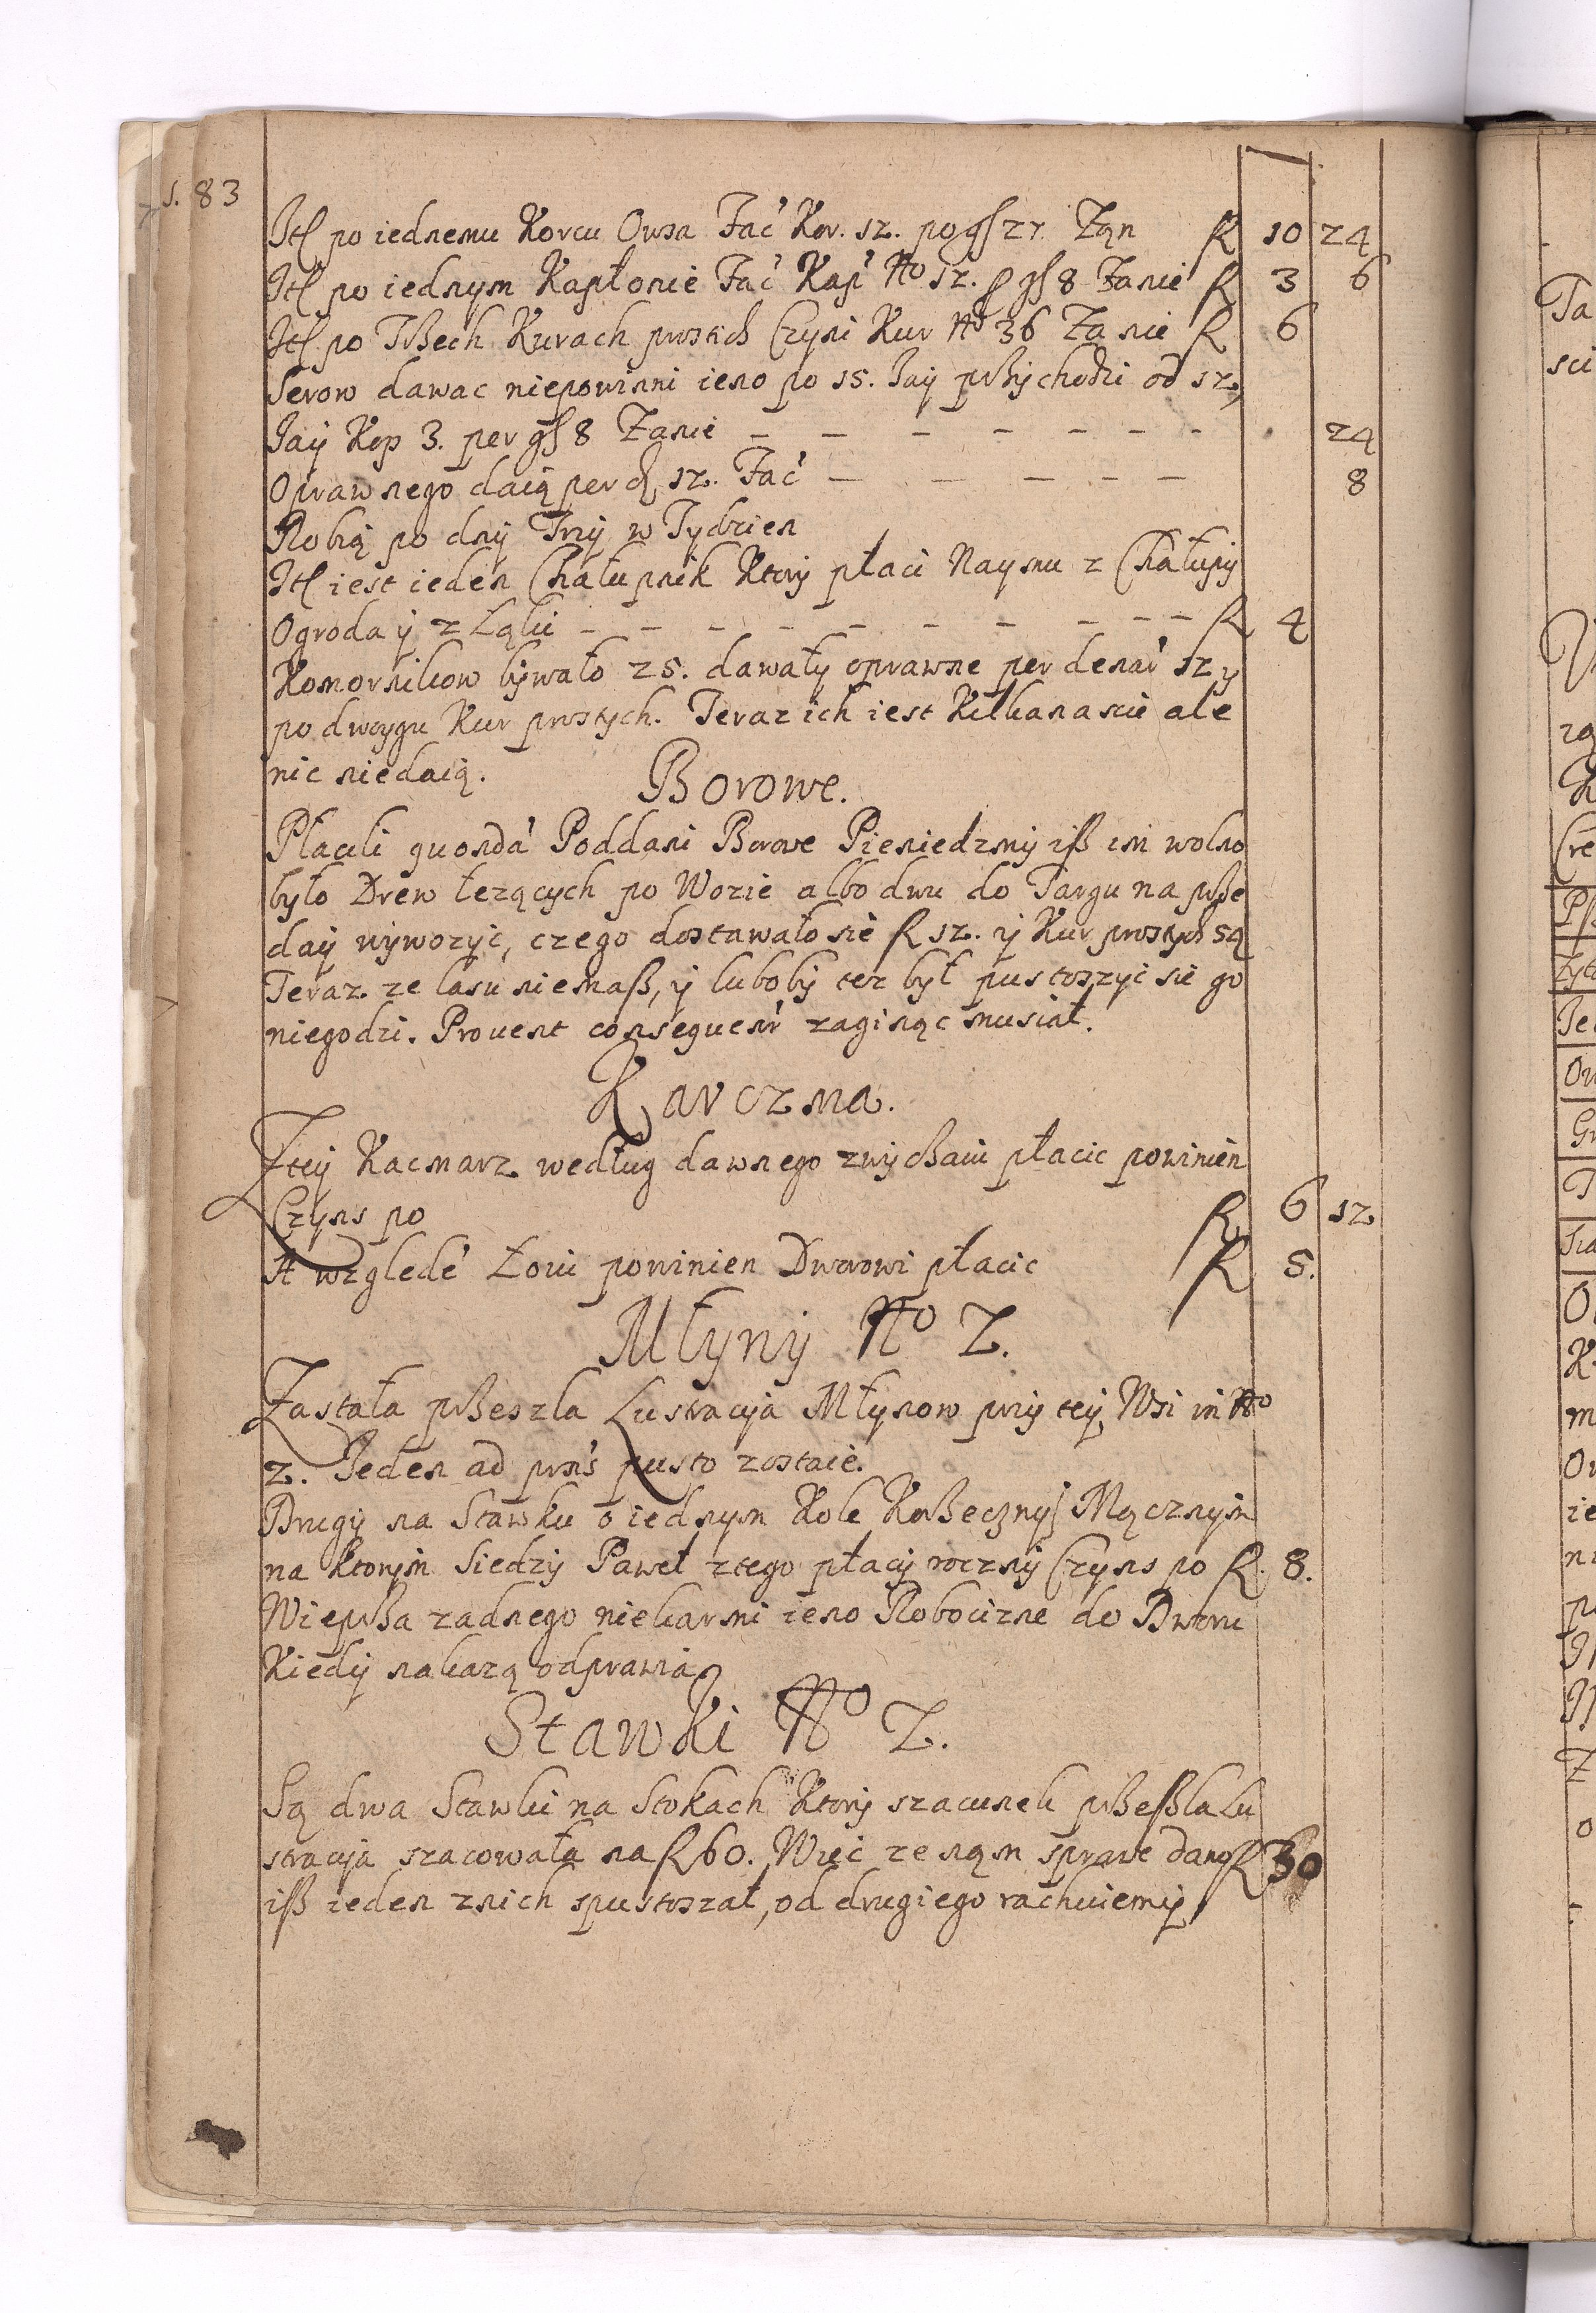 s. 83
Itē po iednemu Korcu Owsa Fać Kor. 12. po gß 27. Zań fl 10 24
Itē po iednym Kapłonie Fać Kap' No 12. p gß 8 Zanie fl 3 6
Itē po Trßech Kurach prostich Czyni Kur No 36 Zanie fl 6
Serow dawac niepowinni ieno po 15. Iay prßychodzi od 12,
Iay Kop 3. per gß 8 Zanie – – – – – – – 24
Oprawnego daią per d, 12. Fać – – – – – 8
Robią po dny Trzy w Tydzien
Itē iest ieden Chałupnik Ktory płaci Naymu z Chałupy
Ogroda y z Łąki – – – – – – – – – – fl 4
Komornikow bywało 25. dawały oprawne per denar' 12 y
po dwoygu Kur prostych. Teraz ich iest Kilkanascie ale
nic niedaią. Borowe.
Płacili quondā Poddani Borowe Pieniedzmy iß im wolno
było Drew łezących po Wozie albo dwu do Targu na prße
day wywozyc, czego dostawało sie fl 12. y Kur prostych 52
Teraz ze lasu niemaß, y luboby tez był pustoszyc sie go
niegodzi. Prouent consequent' zaginąc musiał.
Karczma.
Ztey Kacmarz według dawnego zwyczaiu płacic powinien
Czyns po fl 6 12
A wzgledē Łoiu powinien Dworowi płacic fl 5.
Młyny No 2.
Zastała prßeszla Lustracyja Młynow przy tey Wsi in No
2. Ieden ad prns pusto zostaie.
Drugy na Stawku o iednym Kole Korßecznym Mącznym
na Ktorym Siedzy Paweł ztego płacy roczny Czyns po fl. 8.
Wieprßa zadnego niekarmi ieno Robocizne do Dworu
Kiedy nakazą odprawia
Stawki No 2.
Są dwa Stawki na Stokach Ktory szacunek prßeßla Lu
stracyja szacowała na fl 60. Wiec ze nąm sprawe dano fl 30
iß ieden znich spustoszał, od drugiego rachuiemy